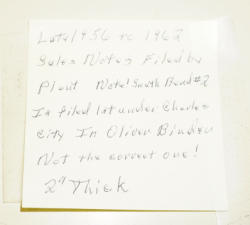 Late 1956 to 1962
Sales Notes Filed by
Plant Note! South Bend #2
Is filed 1st under Charles
City In Oliver Binder
Not the correct one!
2" Thick